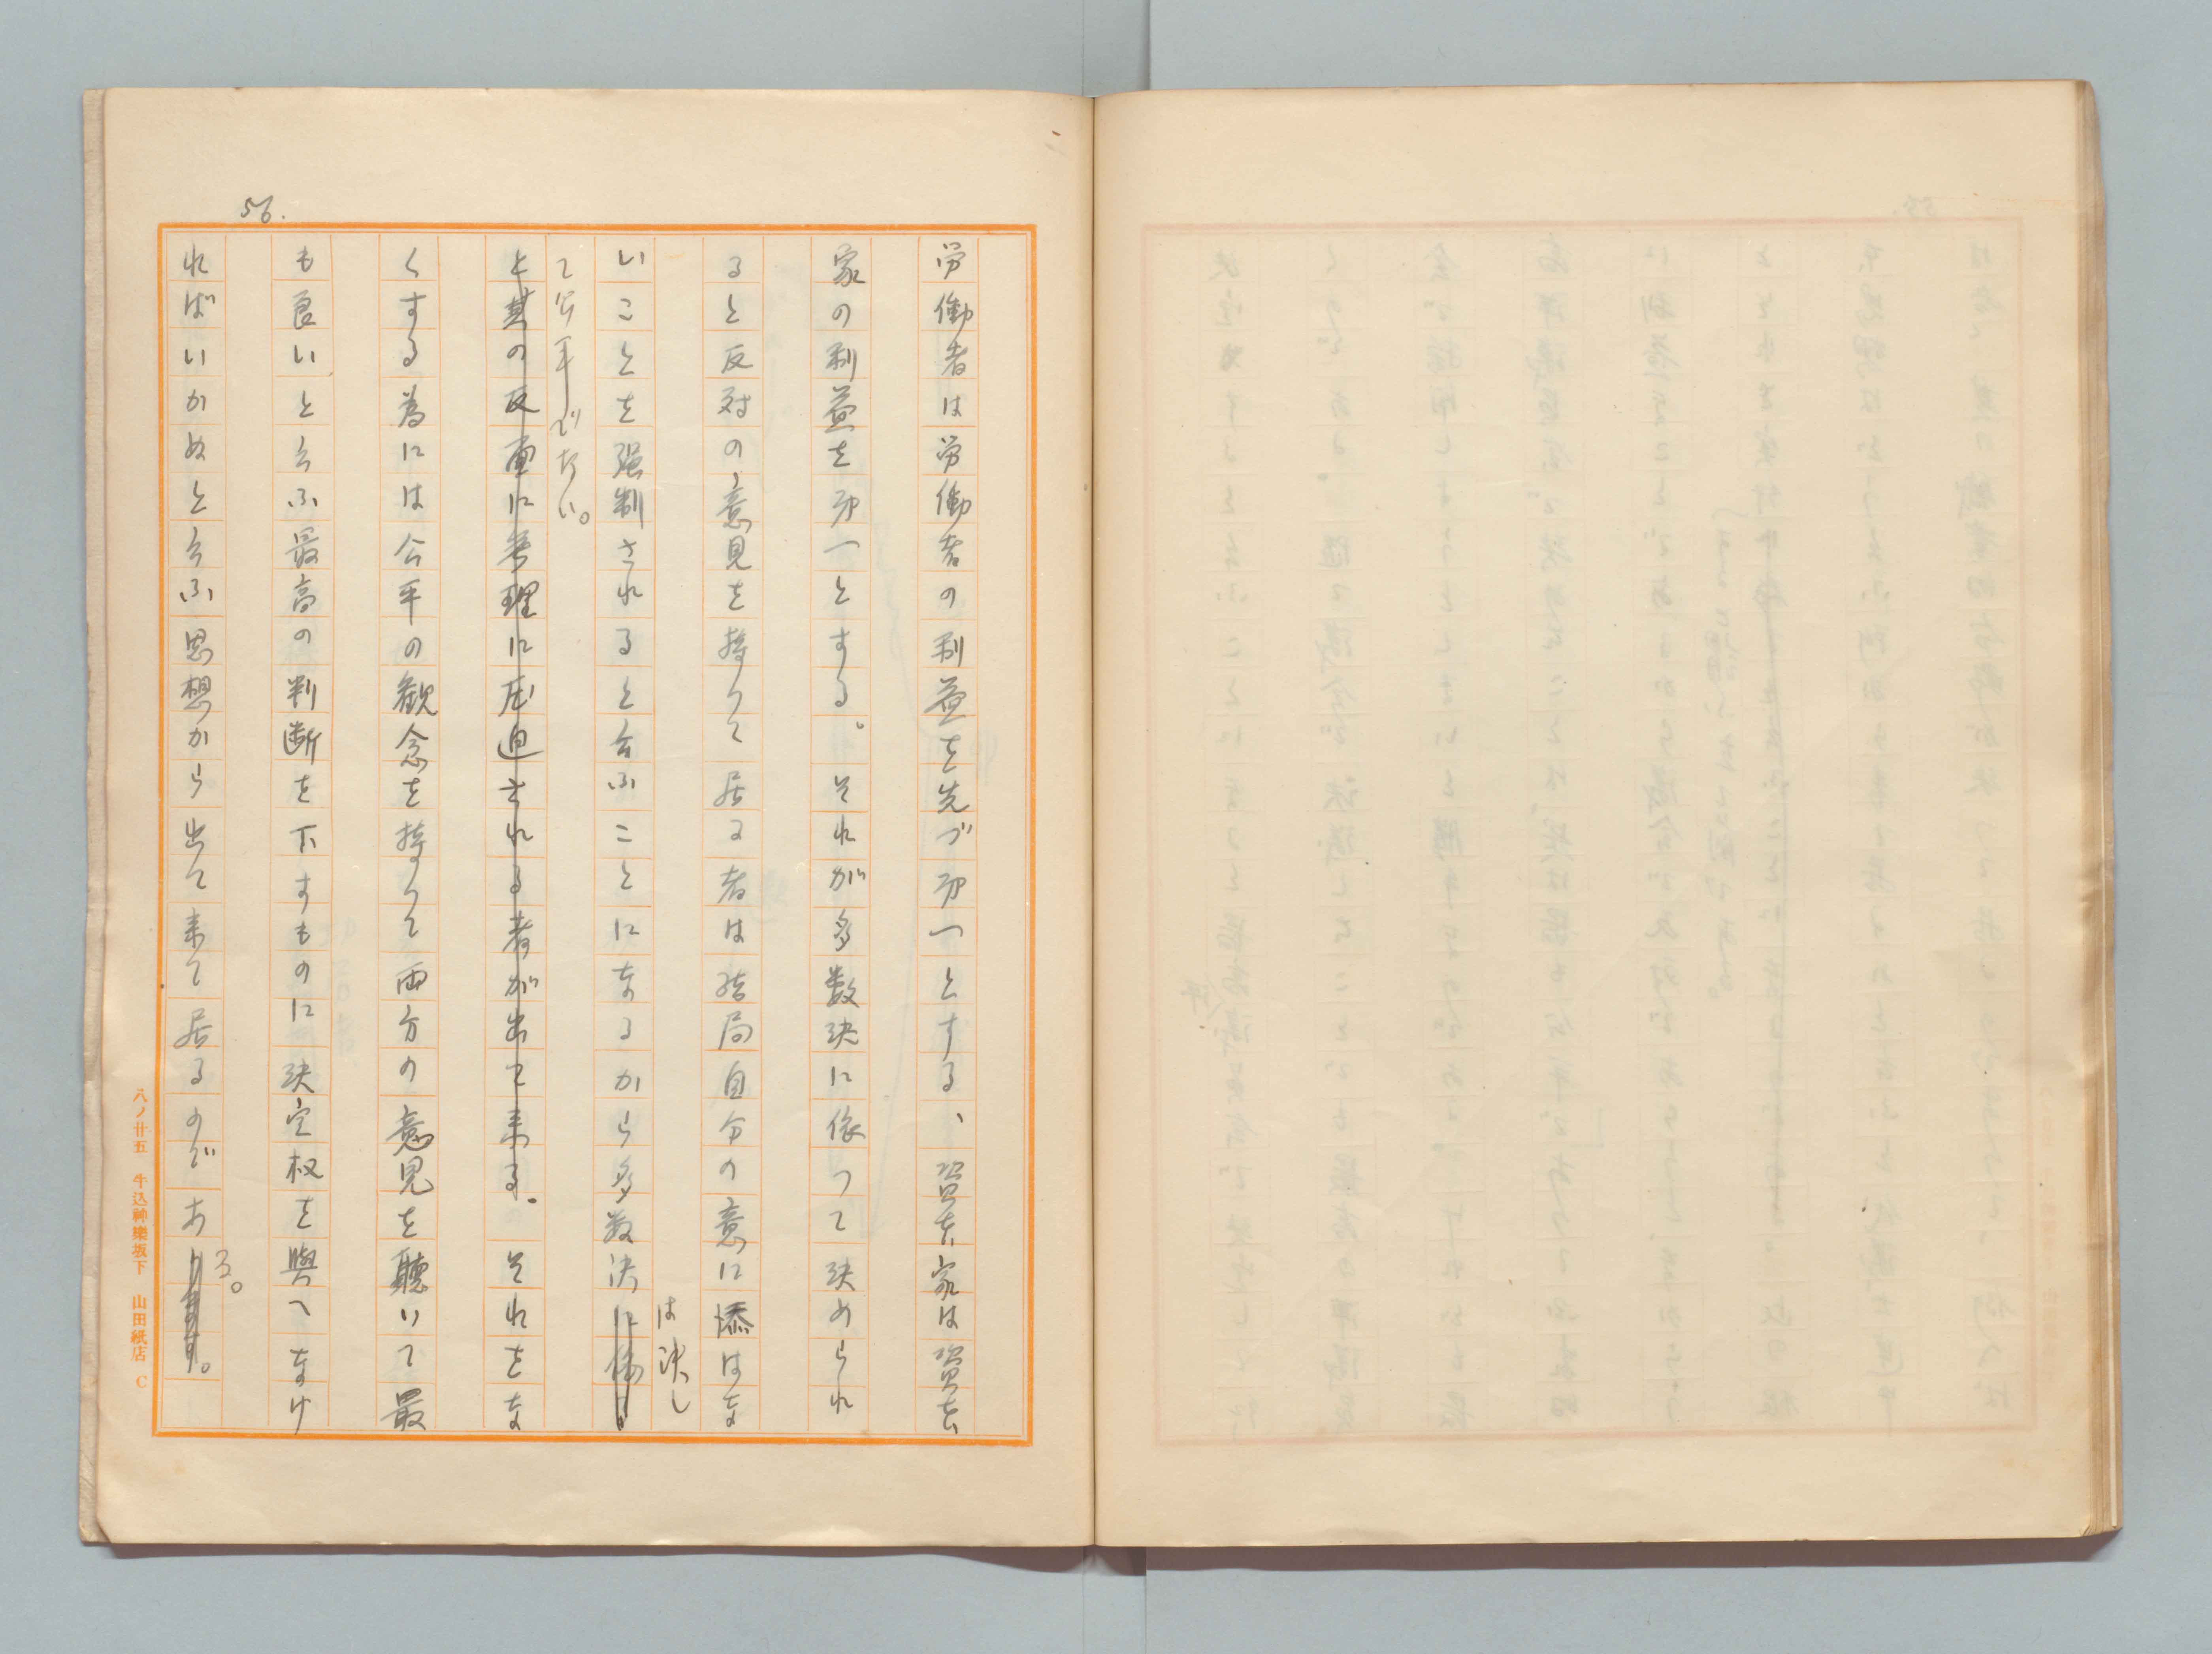 56.
労働者は労働者の利益を先づ㐧一とする、資本家は資本
家の利益を㐧一とする。それが多数決に依つて決められ
ると反対の意見を持つて居る者は結局自分の意に添はな
いことを强制されると云ふことになるから多数決に依ると
は決し
て公平でない。
と其の反面に無理に圧迫される者が出て来る。それをな
くする為には公平の観念を持つて両方の意見を聽いて最
も良いと云ふ最高の判断を下すものに決定权を與へなけ
ればいかぬと云ふ思想から出て来て居るのであります。
る。
八ノ廿五 牛込神樂坂下 山田紙店 C